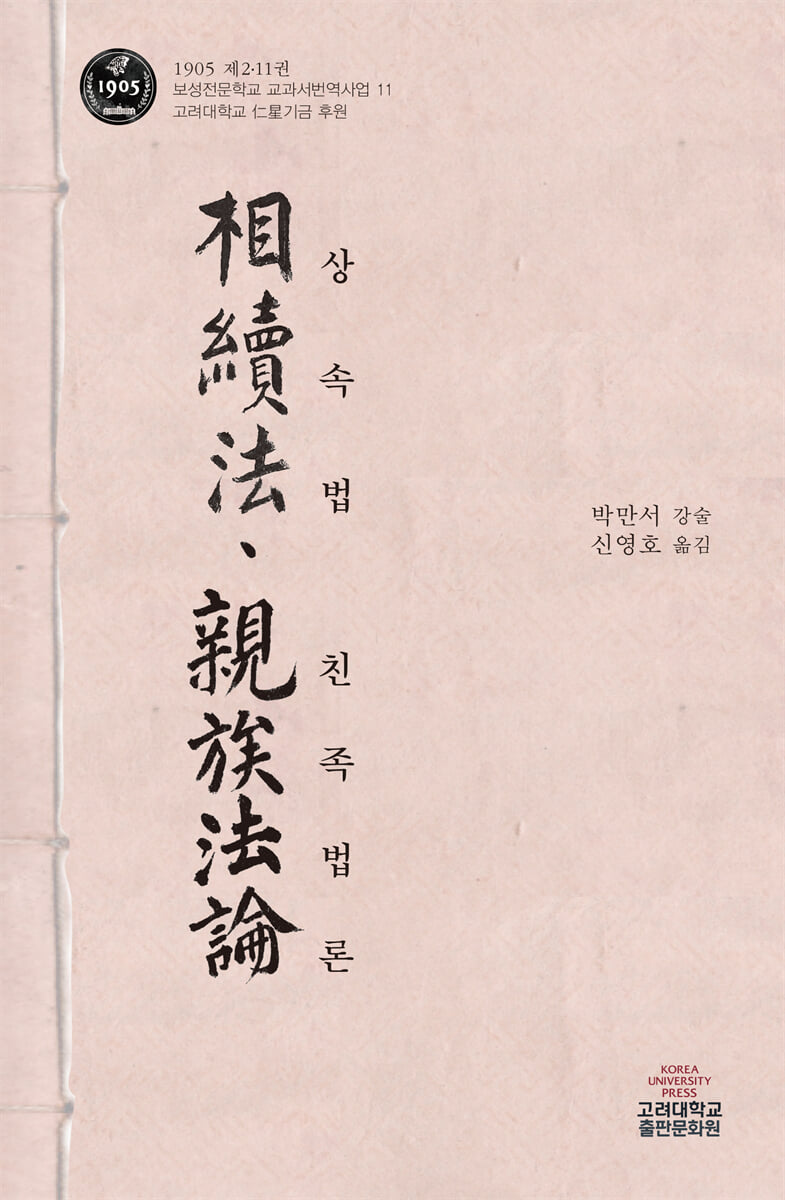 1905
1905 제2·11권
보성전문학교 교과서번역사업 11
고려대학교 仁星기금 후원
相續法、親族法論
상속법 친족법론
박만서 강술
신영호 옮김
KOREA
UNIVERSITY
PRESS
고려대학교
출판문화원